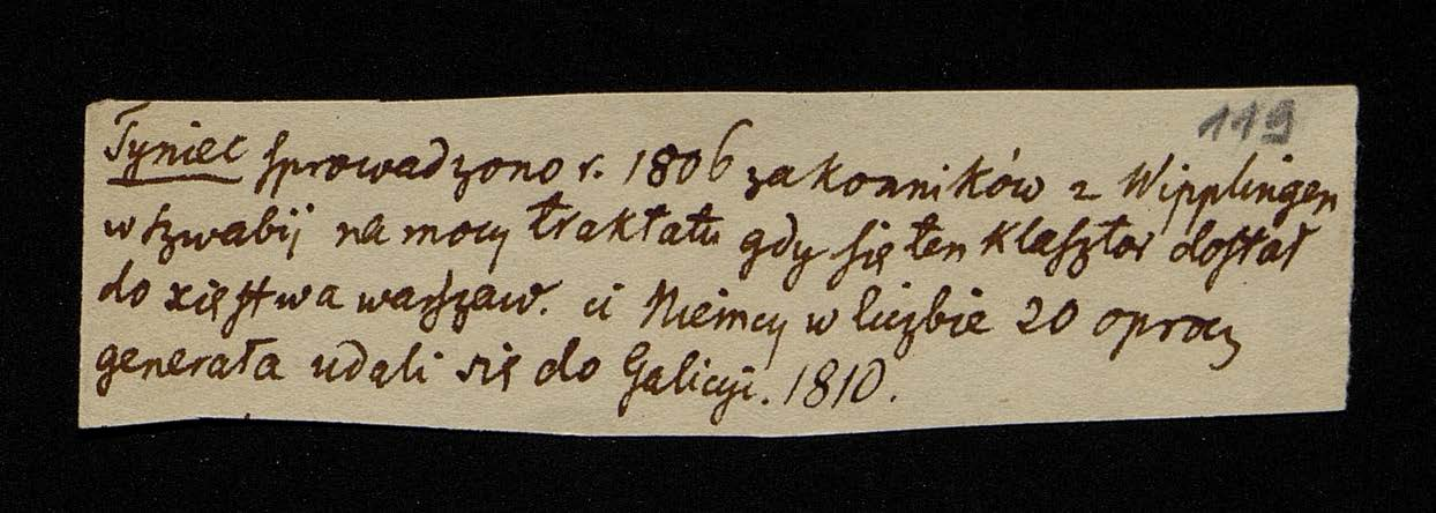 119
Tyniec sprowadzono r. 1806 zakonników z Wipplingen
w szwabij na mocy traktatu gdy się ten klasztor dostał
do xięstwa warszaw. ci Niemcy w liczbie 20 oprocz
generała udali się do Galicyi. 1810.